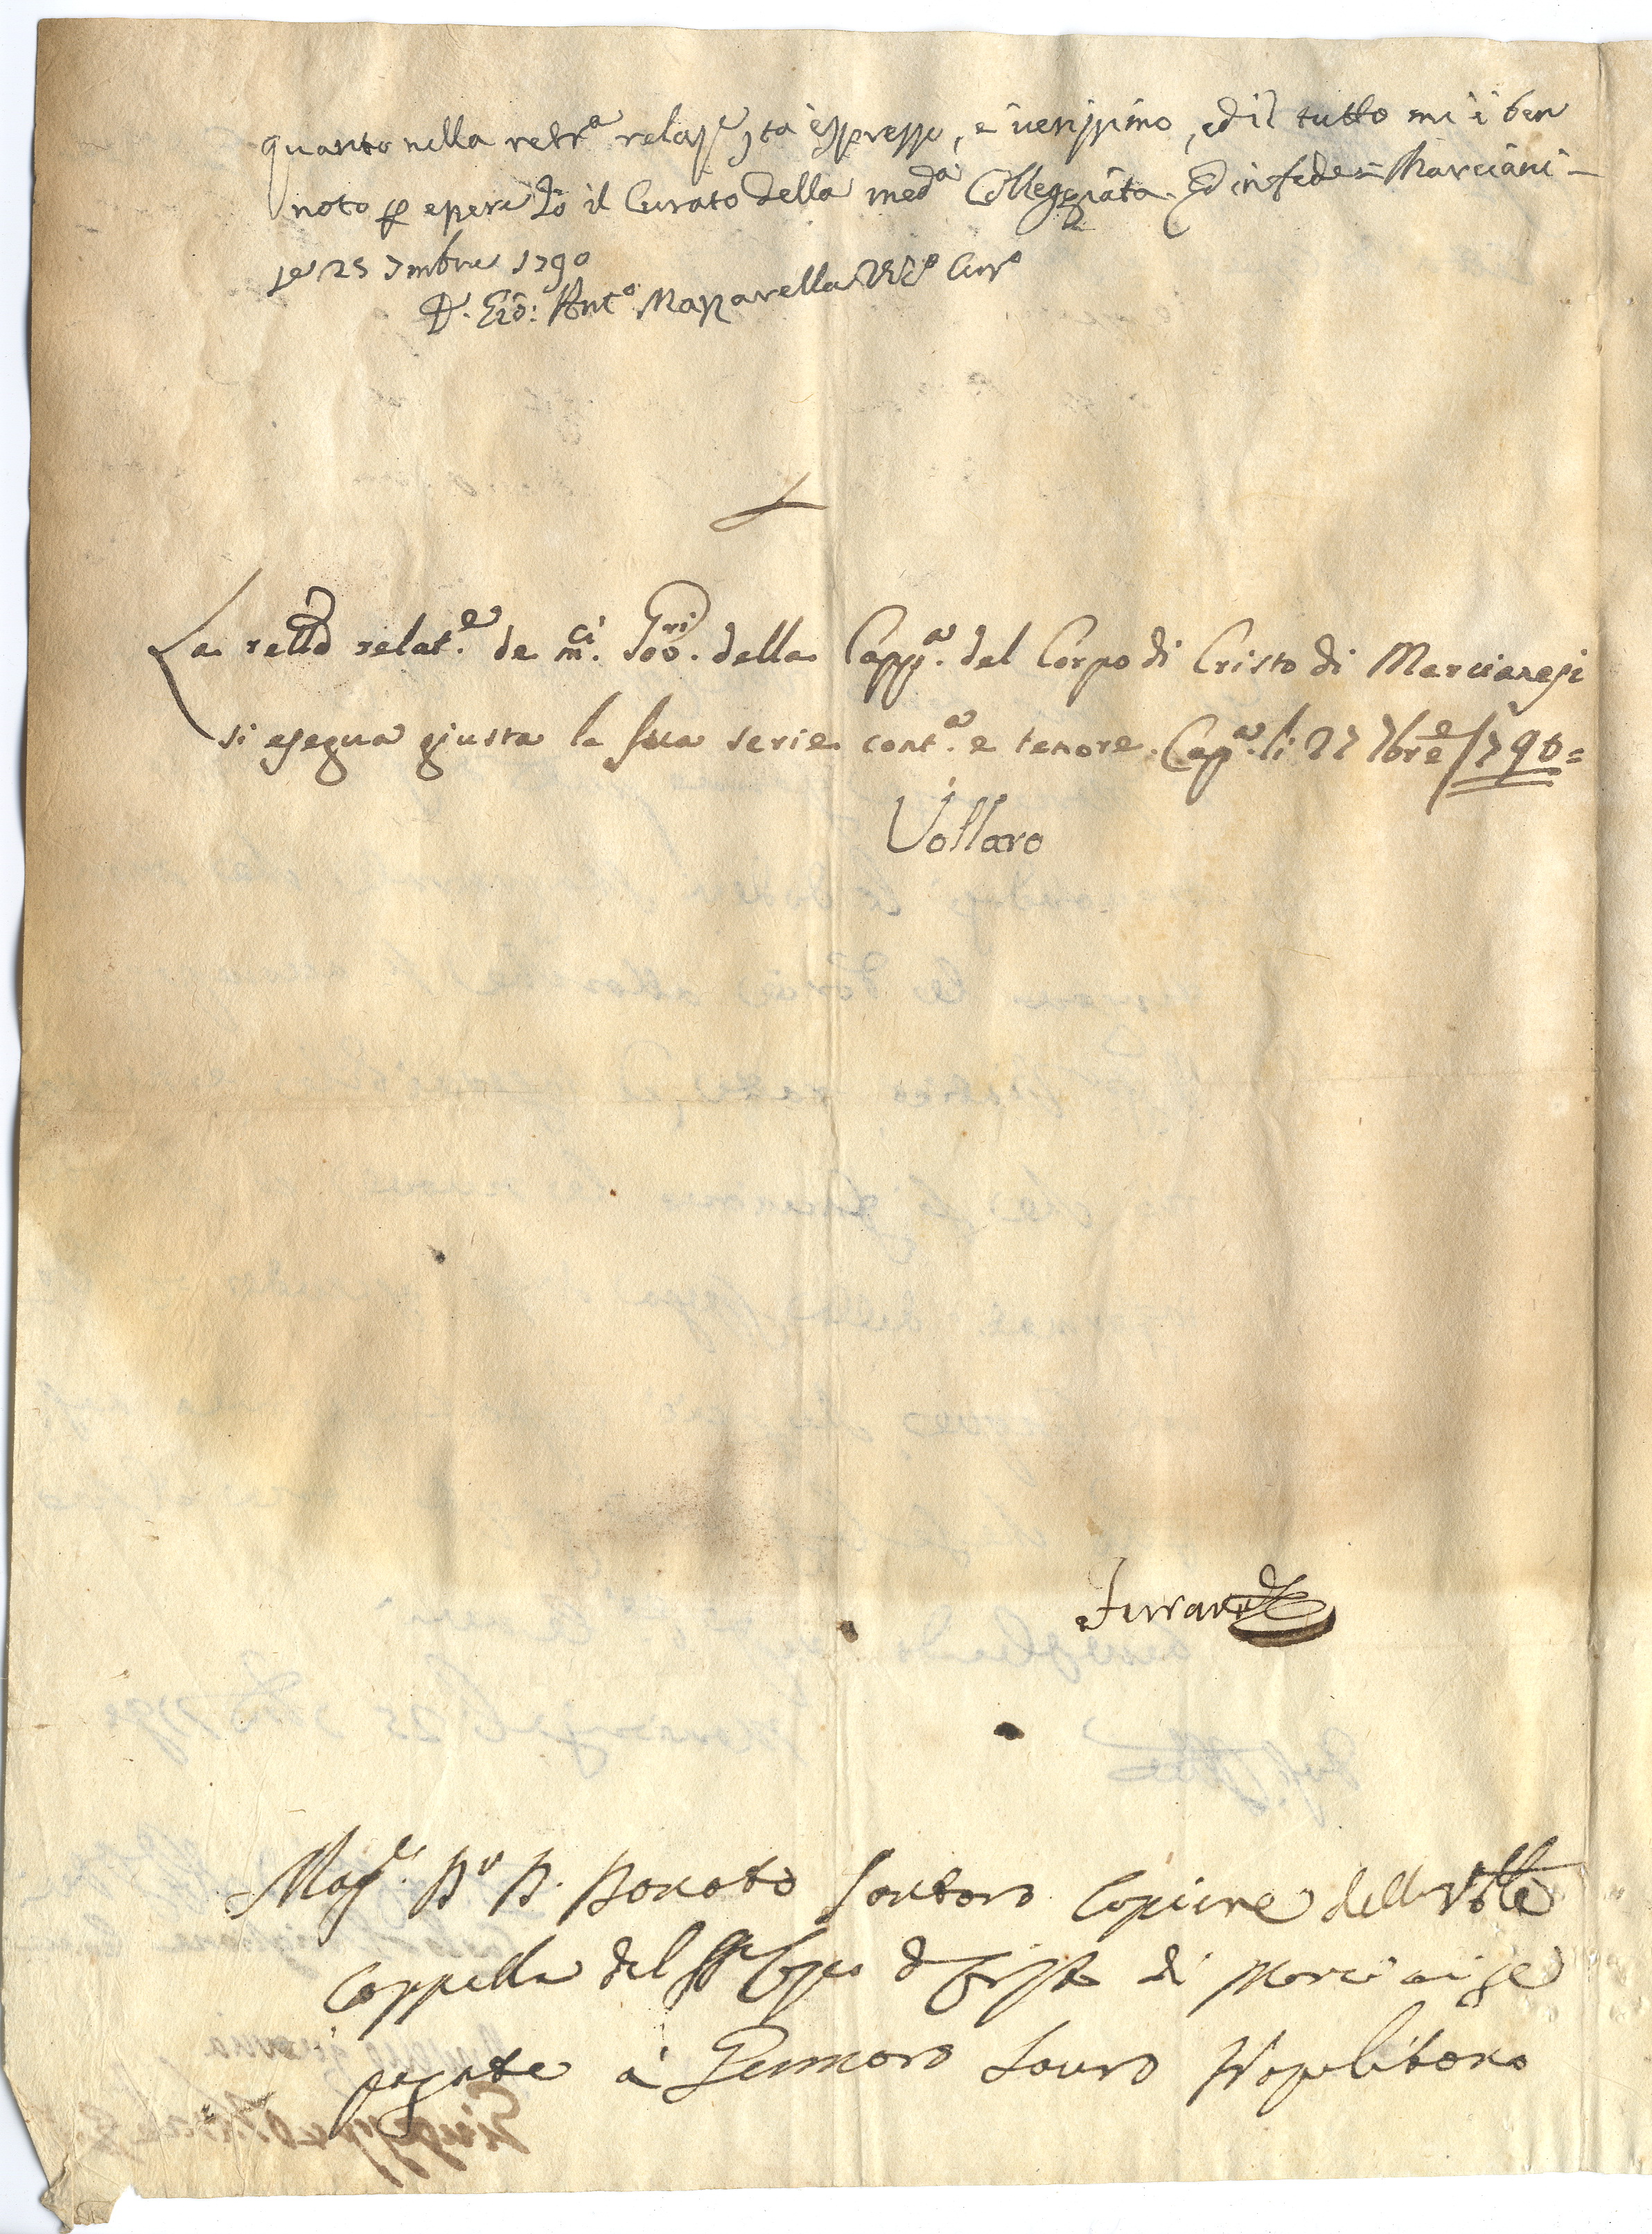 quanto nella retr.a relaz.e sta espresso, è verissimo, ed il tutto mi è ben
noto p essere Io il Curato della med.a Colleggiata. Ed in fede = Marciani-
se 25 7mbre 1790
D. Gio: Ant.o Mazzarella Vic.o Cur.o
La retro relat.e de m.ci Gov.ri della Capp.a del Corpo di Cristo di Marcianesi
si esegua giusta la sua serie cont.a e tenore. Cap.a li 27 7bre 1790=
Vollaro
Ferraro
Mag.co D.r D. Donato Santoro Copiere della
Cappella del Corpo di Cristo di Marcianise
pagate à Gennaro Lauro Napolitano